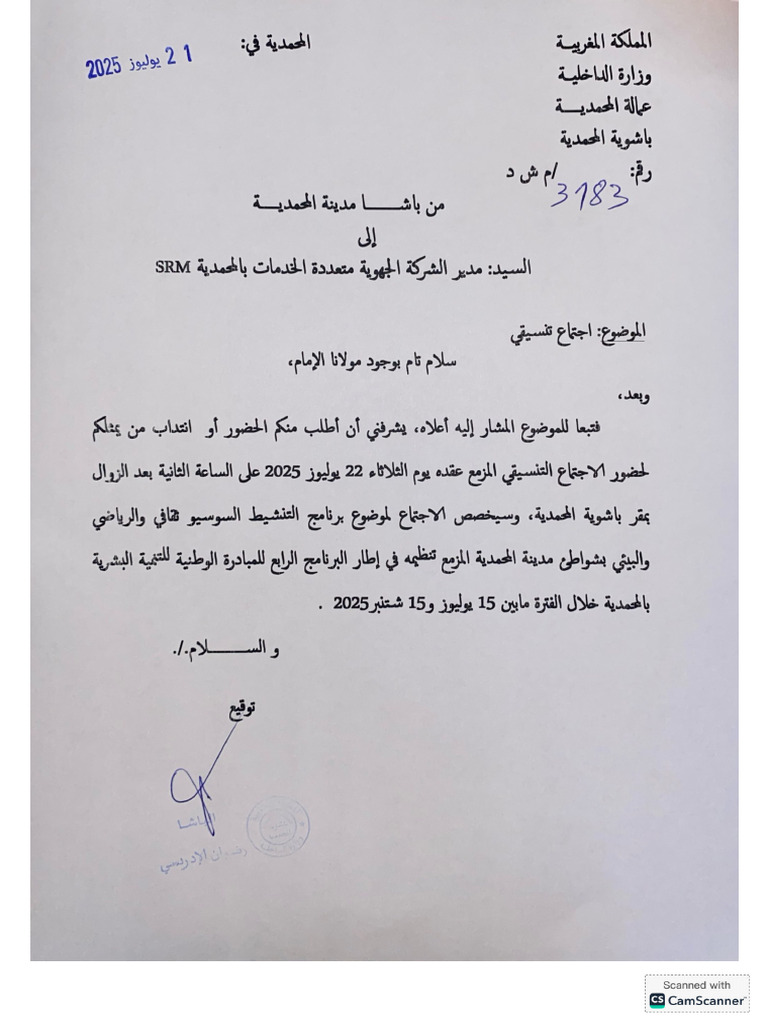 المملكة المغربية
وزارة الداخلية
عمالة المحمدية
باشوية المحمدية
رقم: 3183 /م ش د
المحمدية في: 21 يوليوز 2025
من باشا مدينة المحمدية
إلى
السيد: مدير الشركة الجهوية متعددة الخدمات بالمحمدية SRM
الموضوع: اجتماع تنسيقي
سلام تام بوجود مولانا الإمام،
وبعد،
فتبعا للموضوع المشار إليه أعلاه، يشرفني أن أطلب منكم الحضور أو انتداب من يمثلكم
لحضور الاجتماع التنسيقي المزمع عقده يوم الثلاثاء 22 يوليوز 2025 على الساعة الثانية بعد الزوال
بمقر باشوية المحمدية، وسيخصص الاجتماع لموضوع برنامج التنشيط السوسيو ثقافي والرياضي
والبيئي بشواطئ مدينة المحمدية المزمع تنظيمه في إطار البرنامج الرابع للمبادرة الوطنية للتنمية البشرية
بالمحمدية خلال الفترة مابين 15 يوليوز و15 شتنبر2025 .
و السلام./.
توقيع
الباشا
رضوان الإدريسي
Scanned with
CS CamScanner